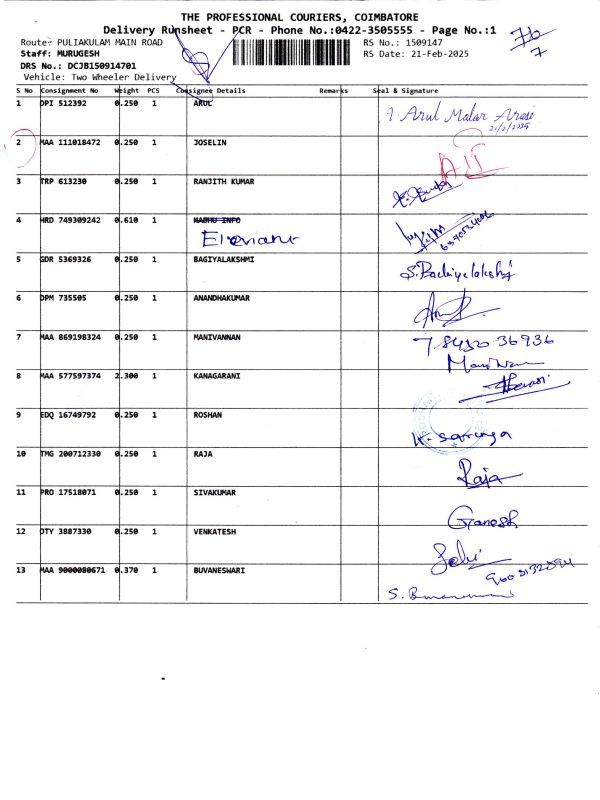 THE PROFESSIONAL COURIERS, COIMBATORE
Delivery Runsheet - PCR - Phone No.:0422-3505555 - Page No.:1
Route: PULIAKULAM MAIN ROAD RS No.: 1509147
Staff: MURUGESH RS Date: 21-Feb-2025
DRS No.: DCJB150914701
Vehicle: Two Wheeler Delivery
S No Consignment No Weight PCS Consignee Details Remarks Seal & Signature
1 DPI 512392 0.250 1 ARUL Arul Malar Arasi
21/2/2025
2 MAA 111018472 0.250 1 JOSELIN
3 TRP 613230 0.250 1 RANJITH KUMAR
4 HRD 749309242 0.610 1 MADHU INFO
5 GDR 5369326 0.250 1 BAGIYALAKSHMI S.Backiyalakshmi
6 DPM 735505 0.250 1 ANANDHAKUMAR
7 MAA 869198324 0.250 1 MANIVANNAN
8 MAA 577597374 2.300 1 KANAGARANI
9 EDQ 16749792 0.250 1 ROSHAN
10 TMG 200712330 0.250 1 RAJA Raja
11 PRO 17518071 0.250 1 SIVAKUMAR Ganesh
12 OTY 3887330 0.250 1 VENKATESH
13 MAA 9000080671 0.370 1 BUVANESWARI